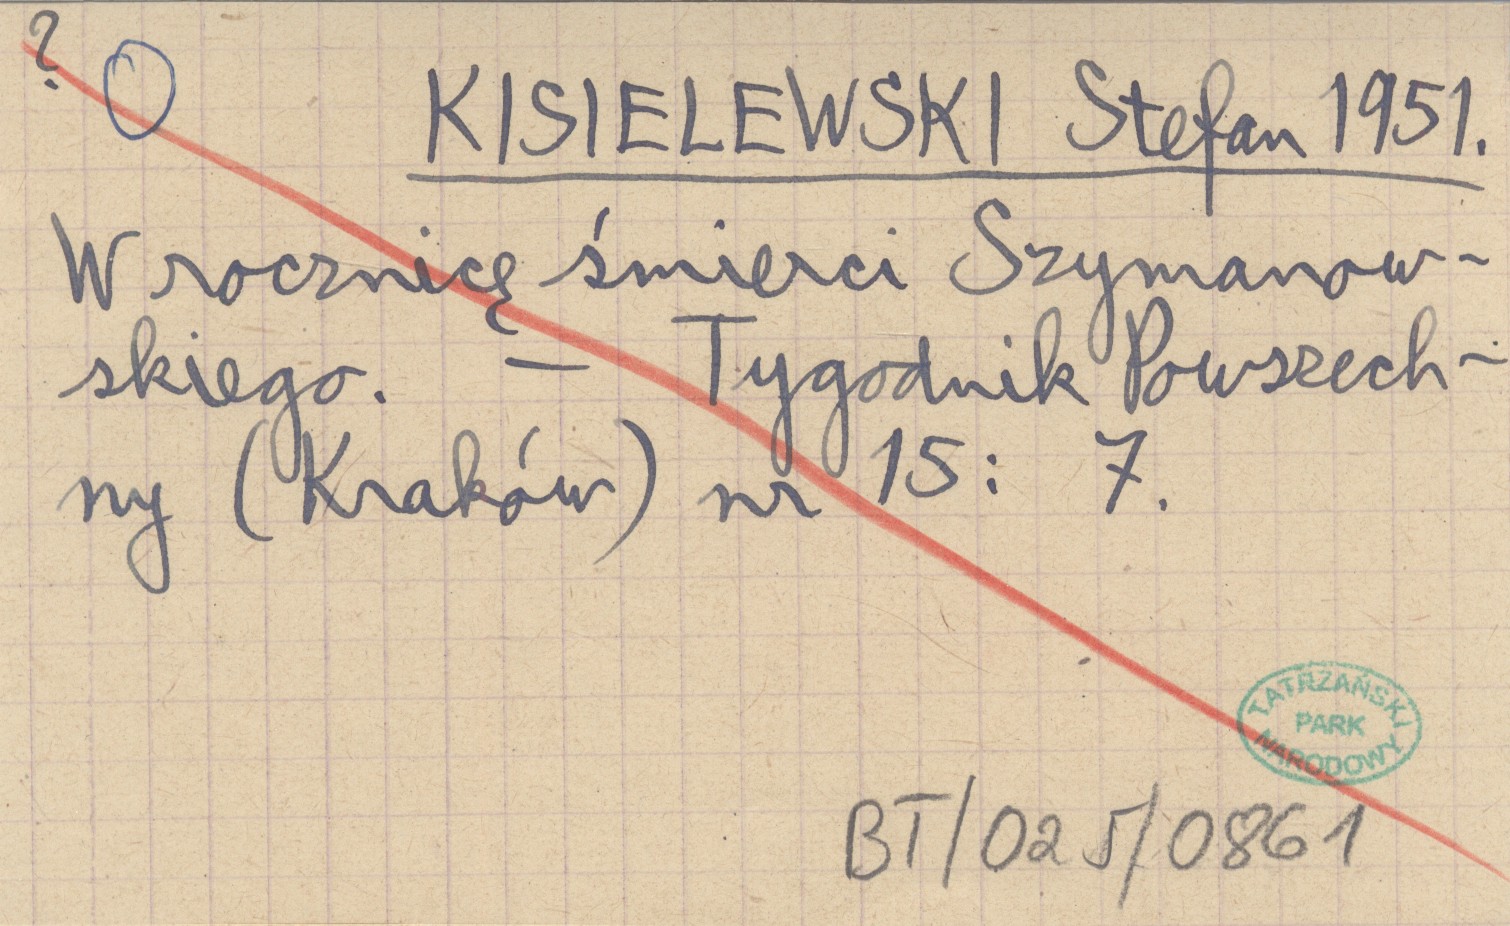 ?
O
KISIELEWSKI Stefan 1951.
W rocznicę śmierci Szymanow-
skiego. — Tygodnik Powszech-
ny (Kraków) nr 15: 7.
TATRZAŃSKI
PARK
NARODOWY
BT/025/0861